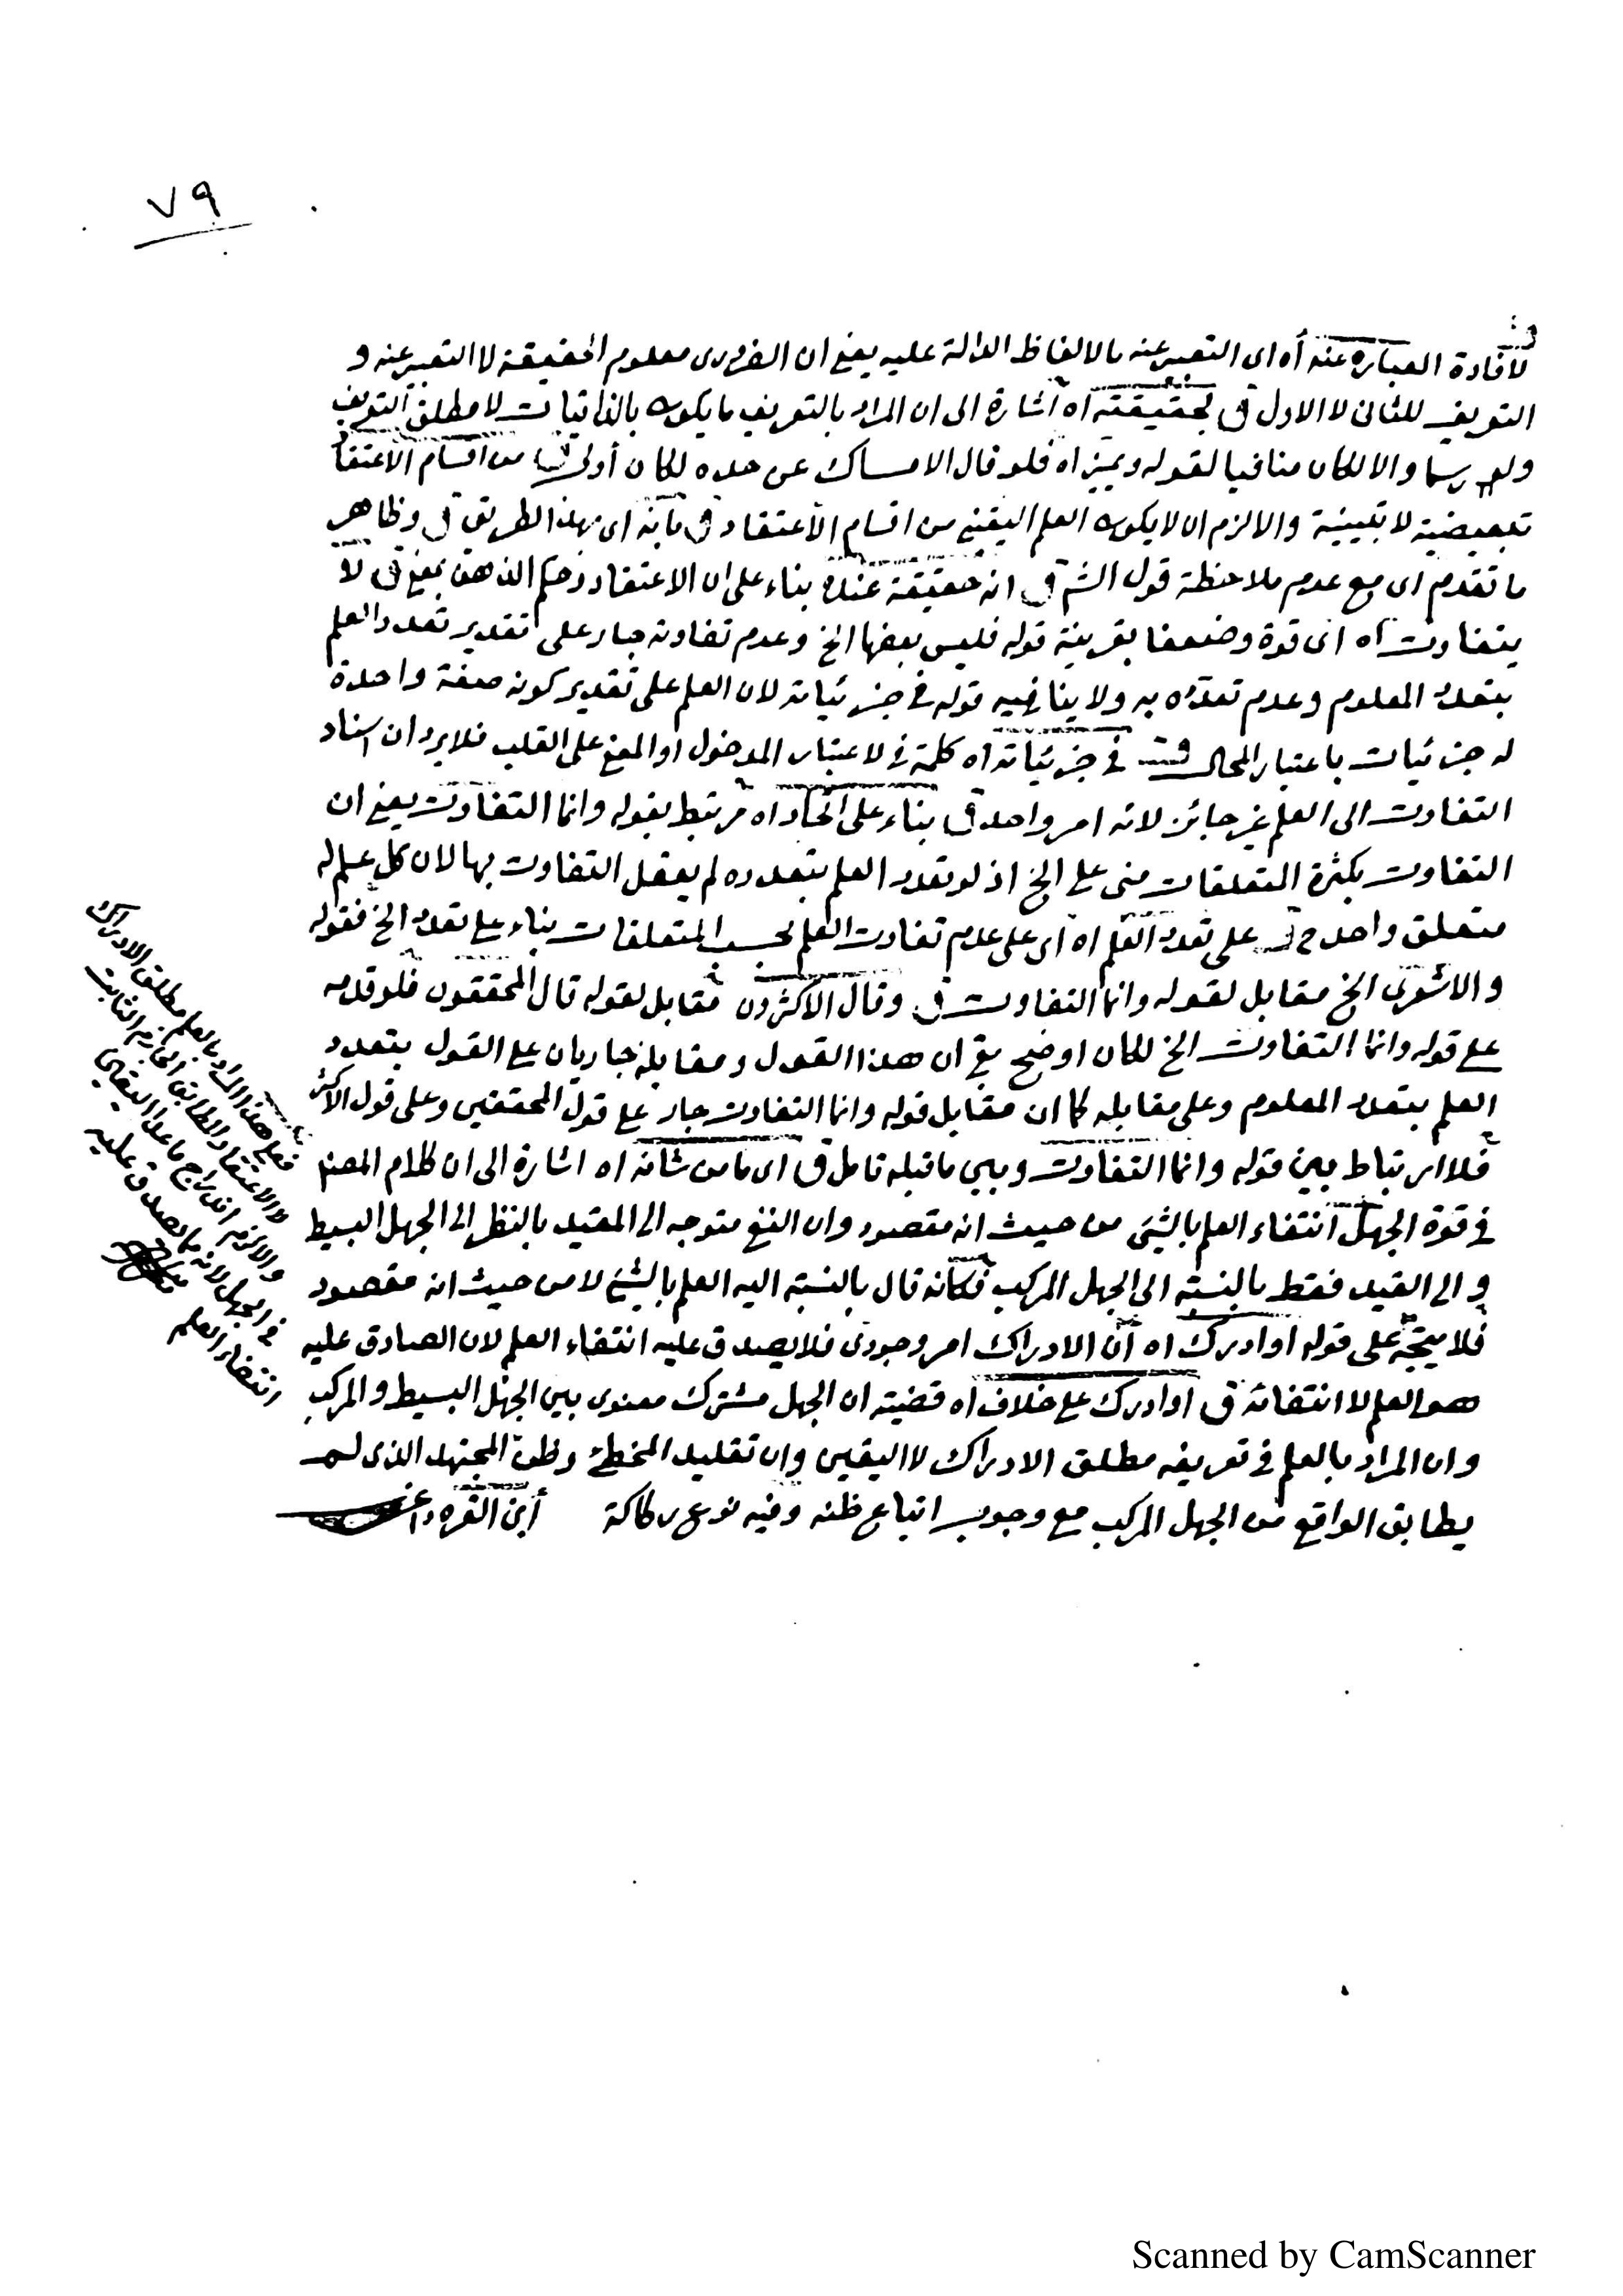 ٧٩
لافادة العبارة عنه اه اى التعبير عنه بالالفاظ الدالة عليه يعني ان الضرورى معلوم الحقيقة لا التعبير عنه و
التعريف للثانى لا الاول ق بحقيقته اه اشارة الى ان المراد بالتعريف ما يكون بالذاتيات لا مطلق التعريف
ولو رسما والا لكان منافيا لقوله ويميز اه فلو قال الامساك عن حده لكان أولى ق من اقسام الاعتقا
تبعيضية لا تبيينية والا لزم ان لا يكون العلم اليقيني من اقسام الاعتقاد ق بانه اى بهذا الطريق ق وظاهر
ما تقدم اى مع عدم ملاحظة قول الش ق انه حقيقة عنده بناء على ان الاعتقاد وحكم الذهن بمعنى ق لا
يتفاوت اه اى قوة وضعفا بقرينة قوله فليس بعضها الخ وعدم تفاوته جار على تقدير تعدد العلم
بتعدد المعلوم وعدم تعدده به ولا ينافيه قوله في جزئياته لان العلم على تقدير كونه صفة واحدة
له جزئيات باعتبار المحال ق في جزئياته اه كلمة في لاعتبار المدخول او المعنى على القلب فلا يرد ان اسناد
التفاوت الى العلم غير جائز لانه امر واحد ق بناء على اتحاد اه مرتبط بقوله وانما التفاوت يعني ان
التفاوت بكثرة المتعلقات مبنى على الخ اذ لو تعدد العلم بتعدده لم يعقل التفاوت بها لان كل علم له
متعلق واحد ح ق على تعدد العلم اه اى على عدم تفاوت العلم بحسب المتعلقات بناء على تعدد الخ فقوله
والاشعرى الخ مقابل لقوله وانما التفاوت ق وقال الاكثرون مقابل لقوله قال المحققون فلو قدمه
على قوله وانما التفاوت الخ لكان اوضح بقى ان هذا القول ومقابله جاريان على القول بتعدد
العلم بتعدد المعلوم وعلى مقابله كما ان مقابل قوله وانما التفاوت جار على قول المحققين وعلى قول الاكثر
فلا ارتباط بين قوله وانما التفاوت وبين ما قبله تامل ق اى ما من شانه اه اشارة الى ان كلام المصنف
في قوة الجهل انتفاء العلم بالشئ من حيث انه مقصود وان النفي متوجه الى المقيد بالنظر الى الجهل البسيط
والى القيد فقط بالنسبة الى الجهل المركب فكأنه قال بالنسبة اليه العلم بالشئ لا من حيث انه مقصود
فلا يتجه على قوله او ادرك اه ان الادراك امر وجودى فلا يصدق عليه انتفاء العلم لان الصادق عليه
هو العلم لا انتفائه ق او ادرك على خلاف اه قضيته ان الجهل مشترك معنوى بين الجهل البسيط والمركب
وان المراد بالعلم في تعريفه مطلق الادراك لا اليقين وان تقليد المخطئ وظن المجتهد الذى لم
يطابق الواقع من الجهل المركب مع وجوب اتباع ظنه وفيه نوع ركاكة ابن القره داغى
فعلى هذا المراد بالعلم مطلق الادراك
لا الاعتقاد المطابق الجازم الثابت
والا لزم اندراج ما عدا اليقين
في الجهل لانه ما يصدق عليه
انتفاء العلم